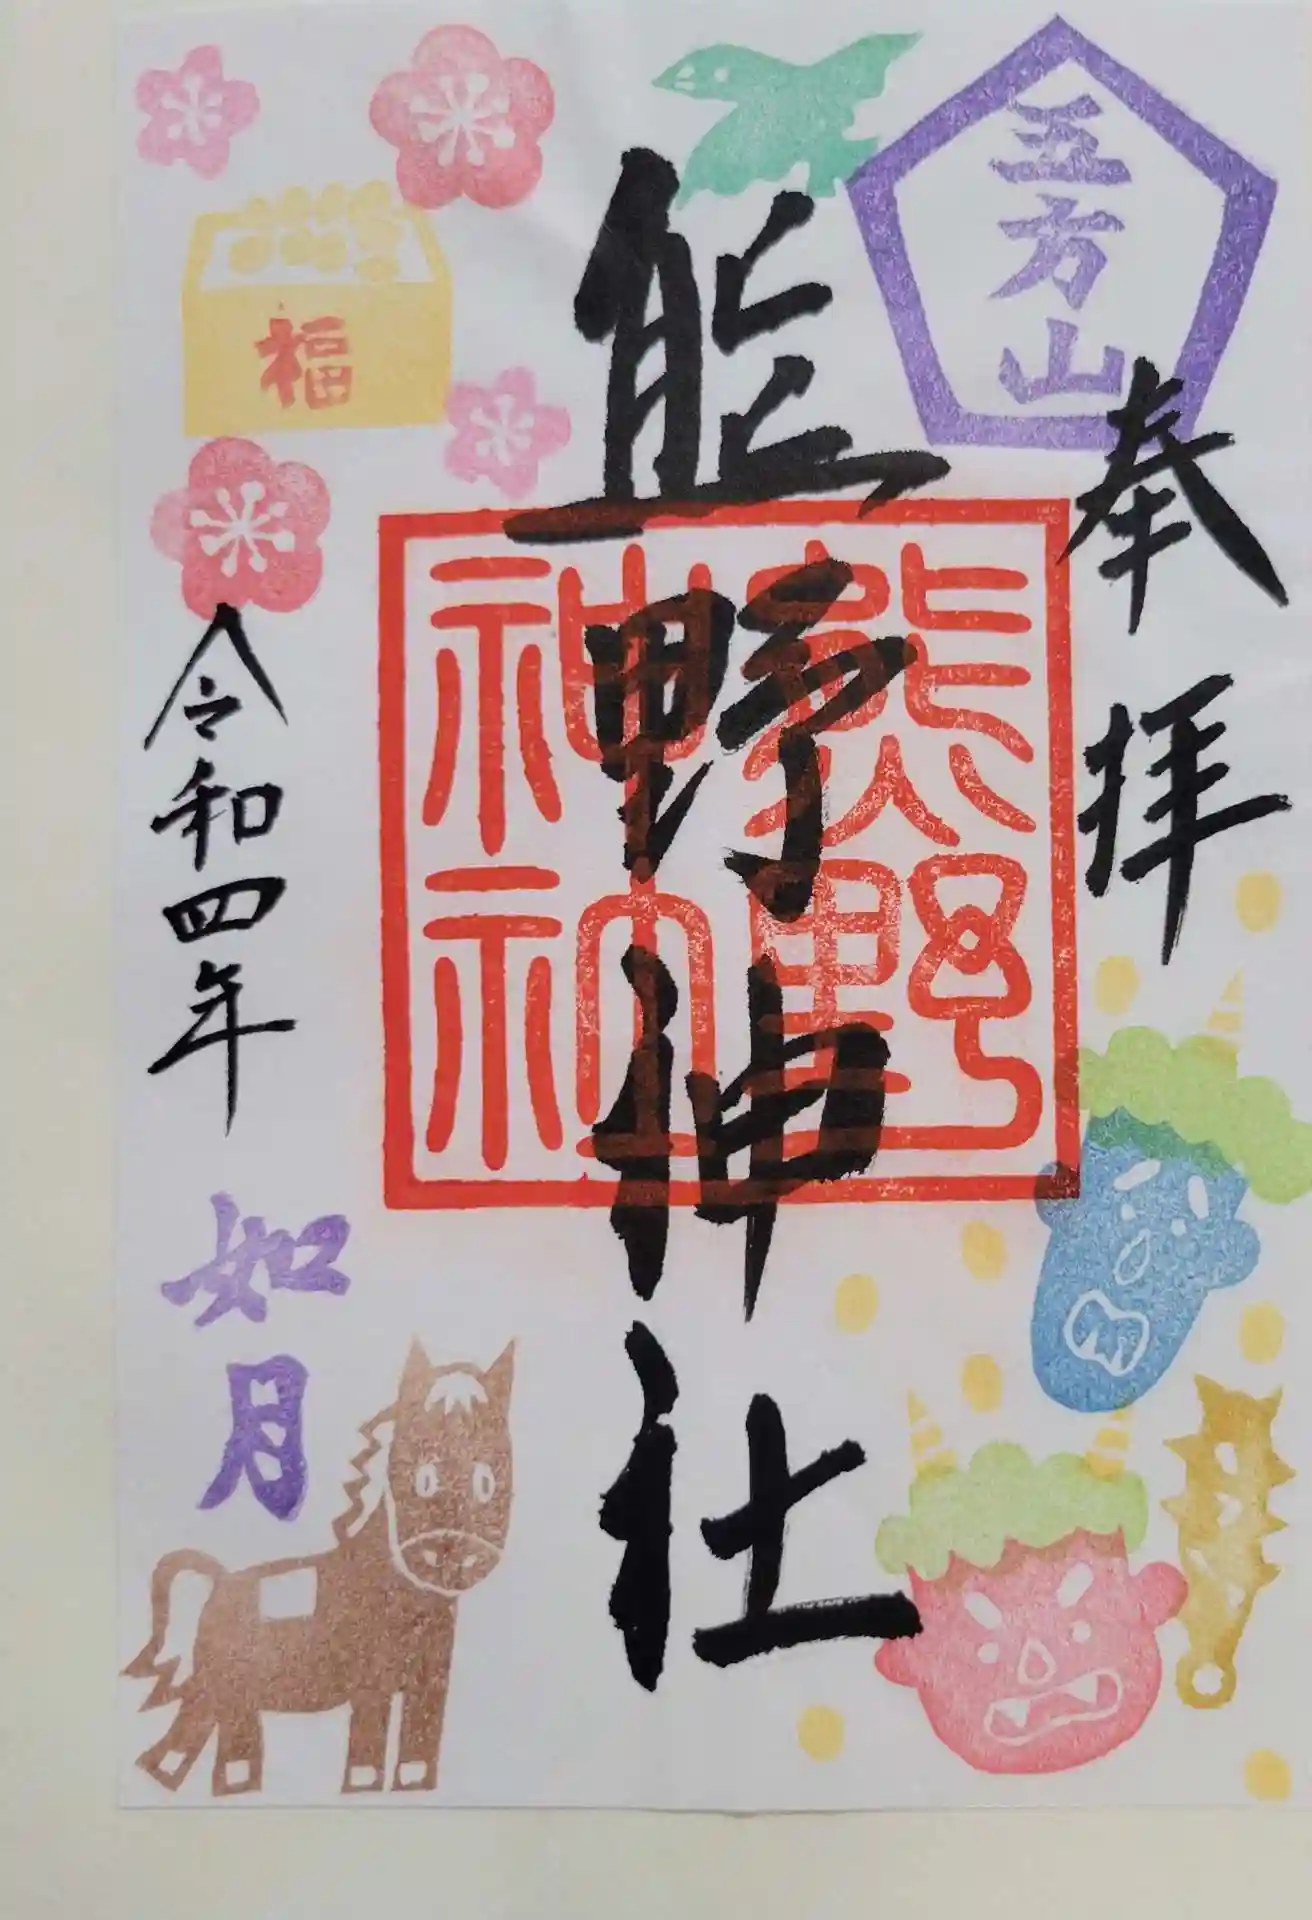 五方山
奉拝
熊野神社
熊野
神社
福
令和四年
如月